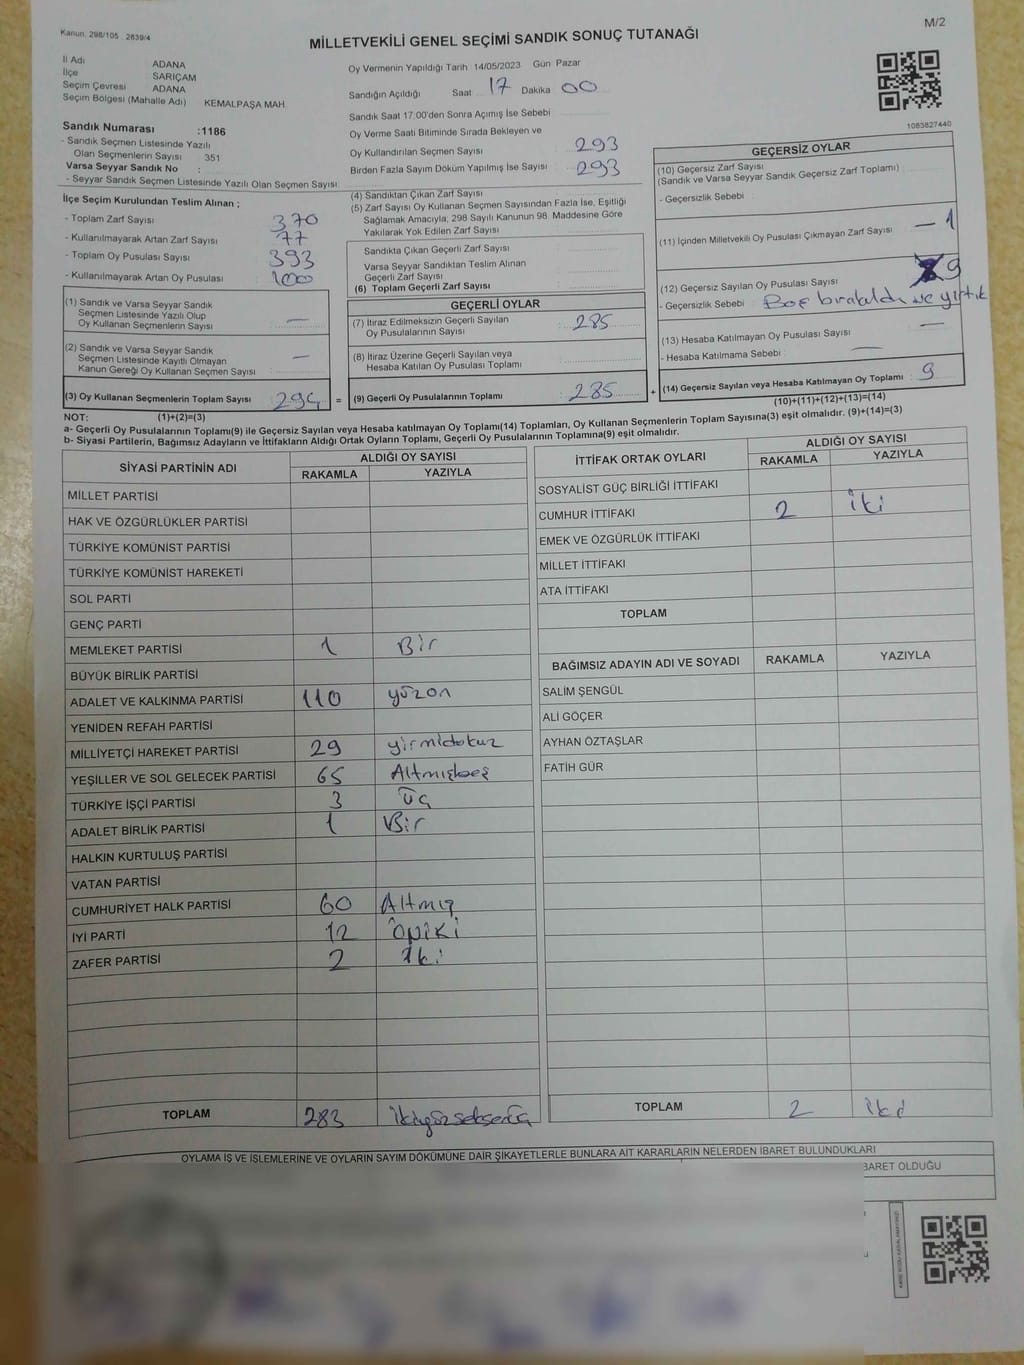 Kanun. 298/105 2839/4
M/2
MİLLETVEKİLİ GENEL SEÇİMİ SANDIK SONUÇ TUTANAĞI
İl Adı ADANA
İlçe SARIÇAM
Seçim Çevresi ADANA
Seçim Bölgesi (Mahalle Adı) KEMALPAŞA MAH.
Sandık Numarası :1186
- Sandık Seçmen Listesinde Yazılı
Olan Seçmenlerin Sayısı 351
Varsa Seyyar Sandık No :
- Seyyar Sandık Seçmen Listesinde Yazılı Olan Seçmen Sayısı
Oy Vermenin Yapıldığı Tarih 14/05/2023 Gün Pazar
Sandığın Açıldığı Saat 17 Dakika 00
Sandık Saat 17:00'den Sonra Açımış İse Sebebi
Oy Verme Saati Bitiminde Sırada Bekleyen ve
Oy Kullandırılan Seçmen Sayısı 293
Birden Fazla Sayım Döküm Yapılmış İse Sayısı 293
1083827440
İlçe Seçim Kurulundan Teslim Alınan ;
- Toplam Zarf Sayısı 370
- Kullanılmayarak Artan Zarf Sayısı 77
- Toplam Oy Pusulası Sayısı 393
- Kullanılmayarak Artan Oy Pusulası 100
(1) Sandık ve Varsa Seyyar Sandık
Seçmen Listesinde Yazılı Olup
Oy Kullanan Seçmenlerin Sayısı : —
(2) Sandık ve Varsa Seyyar Sandık
Seçmen Listesinde Kayıtlı Olmayan
Kanun Gereği Oy Kullanan Seçmen Sayısı : —
(3) Oy Kullanan Seçmenlerin Toplam Sayısı : 294 =
(4) Sandıktan Çıkan Zarf Sayısı
(5) Zarf Sayısı Oy Kullanan Seçmen Sayısından Fazla İse, Eşitliği
Sağlamak Amacıyla; 298 Sayılı Kanunun 98. Maddesine Göre
Yakılarak Yok Edilen Zarf Sayısı
Sandıkta Çıkan Geçerli Zarf Sayısı
Varsa Seyyar Sandıktan Teslim Alınan
Geçerli Zarf Sayısı
(6) Toplam Geçerli Zarf Sayısı :
GEÇERLİ OYLAR
(7) İtiraz Edilmeksizin Geçerli Sayılan
Oy Pusulalarının Sayısı : 285
(8) İtiraz Üzerine Geçerli Sayılan veya
Hesaba Katılan Oy Pusulası Toplamı :
(9) Geçerli Oy Pusulalarının Toplamı : 285 +
GEÇERSİZ OYLAR
(10) Geçersiz Zarf Sayısı
(Sandık ve Varsa Seyyar Sandık Geçersiz Zarf Toplamı) :
- Geçersizlik Sebebi :
(11) İçinden Milletvekili Oy Pusulası Çıkmayan Zarf Sayısı : — 1
(12) Geçersiz Sayılan Oy Pusulası Sayısı : 9
- Geçersizlik Sebebi : Boş bırakıldı ve yırtık
(13) Hesaba Katılmayan Oy Pusulası Sayısı : —
- Hesaba Katılmama Sebebi : —
(14) Geçersiz Sayılan veya Hesaba Katılmayan Oy Toplamı : 9
(10)+(11)+(12)+(13)=(14)
NOT: (1)+(2)=(3)
a- Geçerli Oy Pusulalarının Toplamı(9) ile Geçersiz Sayılan veya Hesaba katılmayan Oy Toplamı(14) Toplamları, Oy Kullanan Seçmenlerin Toplam Sayısına(3) eşit olmalıdır. (9)+(14)=(3)
b- Siyasi Partilerin, Bağımsız Adayların ve İttifakların Aldığı Ortak Oyların Toplamı, Geçerli Oy Pusulalarının Toplamına(9) eşit olmalıdır.
SİYASİ PARTİNİN ADI ALDIĞI OY SAYISI
RAKAMLA YAZIYLA
MİLLET PARTİSİ
HAK VE ÖZGÜRLÜKLER PARTİSİ
TÜRKİYE KOMÜNİST PARTİSİ
TÜRKİYE KOMÜNİST HAREKETİ
SOL PARTİ
GENÇ PARTİ
MEMLEKET PARTİSİ 1 Bir
BÜYÜK BİRLİK PARTİSİ
ADALET VE KALKINMA PARTİSİ 110 yüzon
YENİDEN REFAH PARTİSİ
MİLLİYETÇİ HAREKET PARTİSİ 29 yirmidokuz
YEŞİLLER VE SOL GELECEK PARTİSİ 65 Altmışbeş
TÜRKİYE İŞÇİ PARTİSİ 3 üç
ADALET BİRLİK PARTİSİ 1 Bir
HALKIN KURTULUŞ PARTİSİ
VATAN PARTİSİ
CUMHURİYET HALK PARTİSİ 60 Altmış
İYİ PARTİ 12 öniki
ZAFER PARTİSİ 2 iki
TOPLAM 283 ikiyüzseksenüç
İTTİFAK ORTAK OYLARI ALDIĞI OY SAYISI
RAKAMLA YAZIYLA
SOSYALİST GÜÇ BİRLİĞİ İTTİFAKI
CUMHUR İTTİFAKI 2 iki
EMEK VE ÖZGÜRLÜK İTTİFAKI
MİLLET İTTİFAKI
ATA İTTİFAKI
TOPLAM
BAĞIMSIZ ADAYIN ADI VE SOYADI RAKAMLA YAZIYLA
SALİM ŞENGÜL
ALİ GÖÇER
AYHAN ÖZTAŞLAR
FATİH GÜR
TOPLAM 2 iki
OYLAMA İŞ VE İŞLEMLERİNE VE OYLARIN SAYIM DÖKÜMÜNE DAİR ŞİKAYETLERLE BUNLARA AİT KARARLARIN NELERDEN İBARET BULUNDUKLARI
BARET OLDUĞU